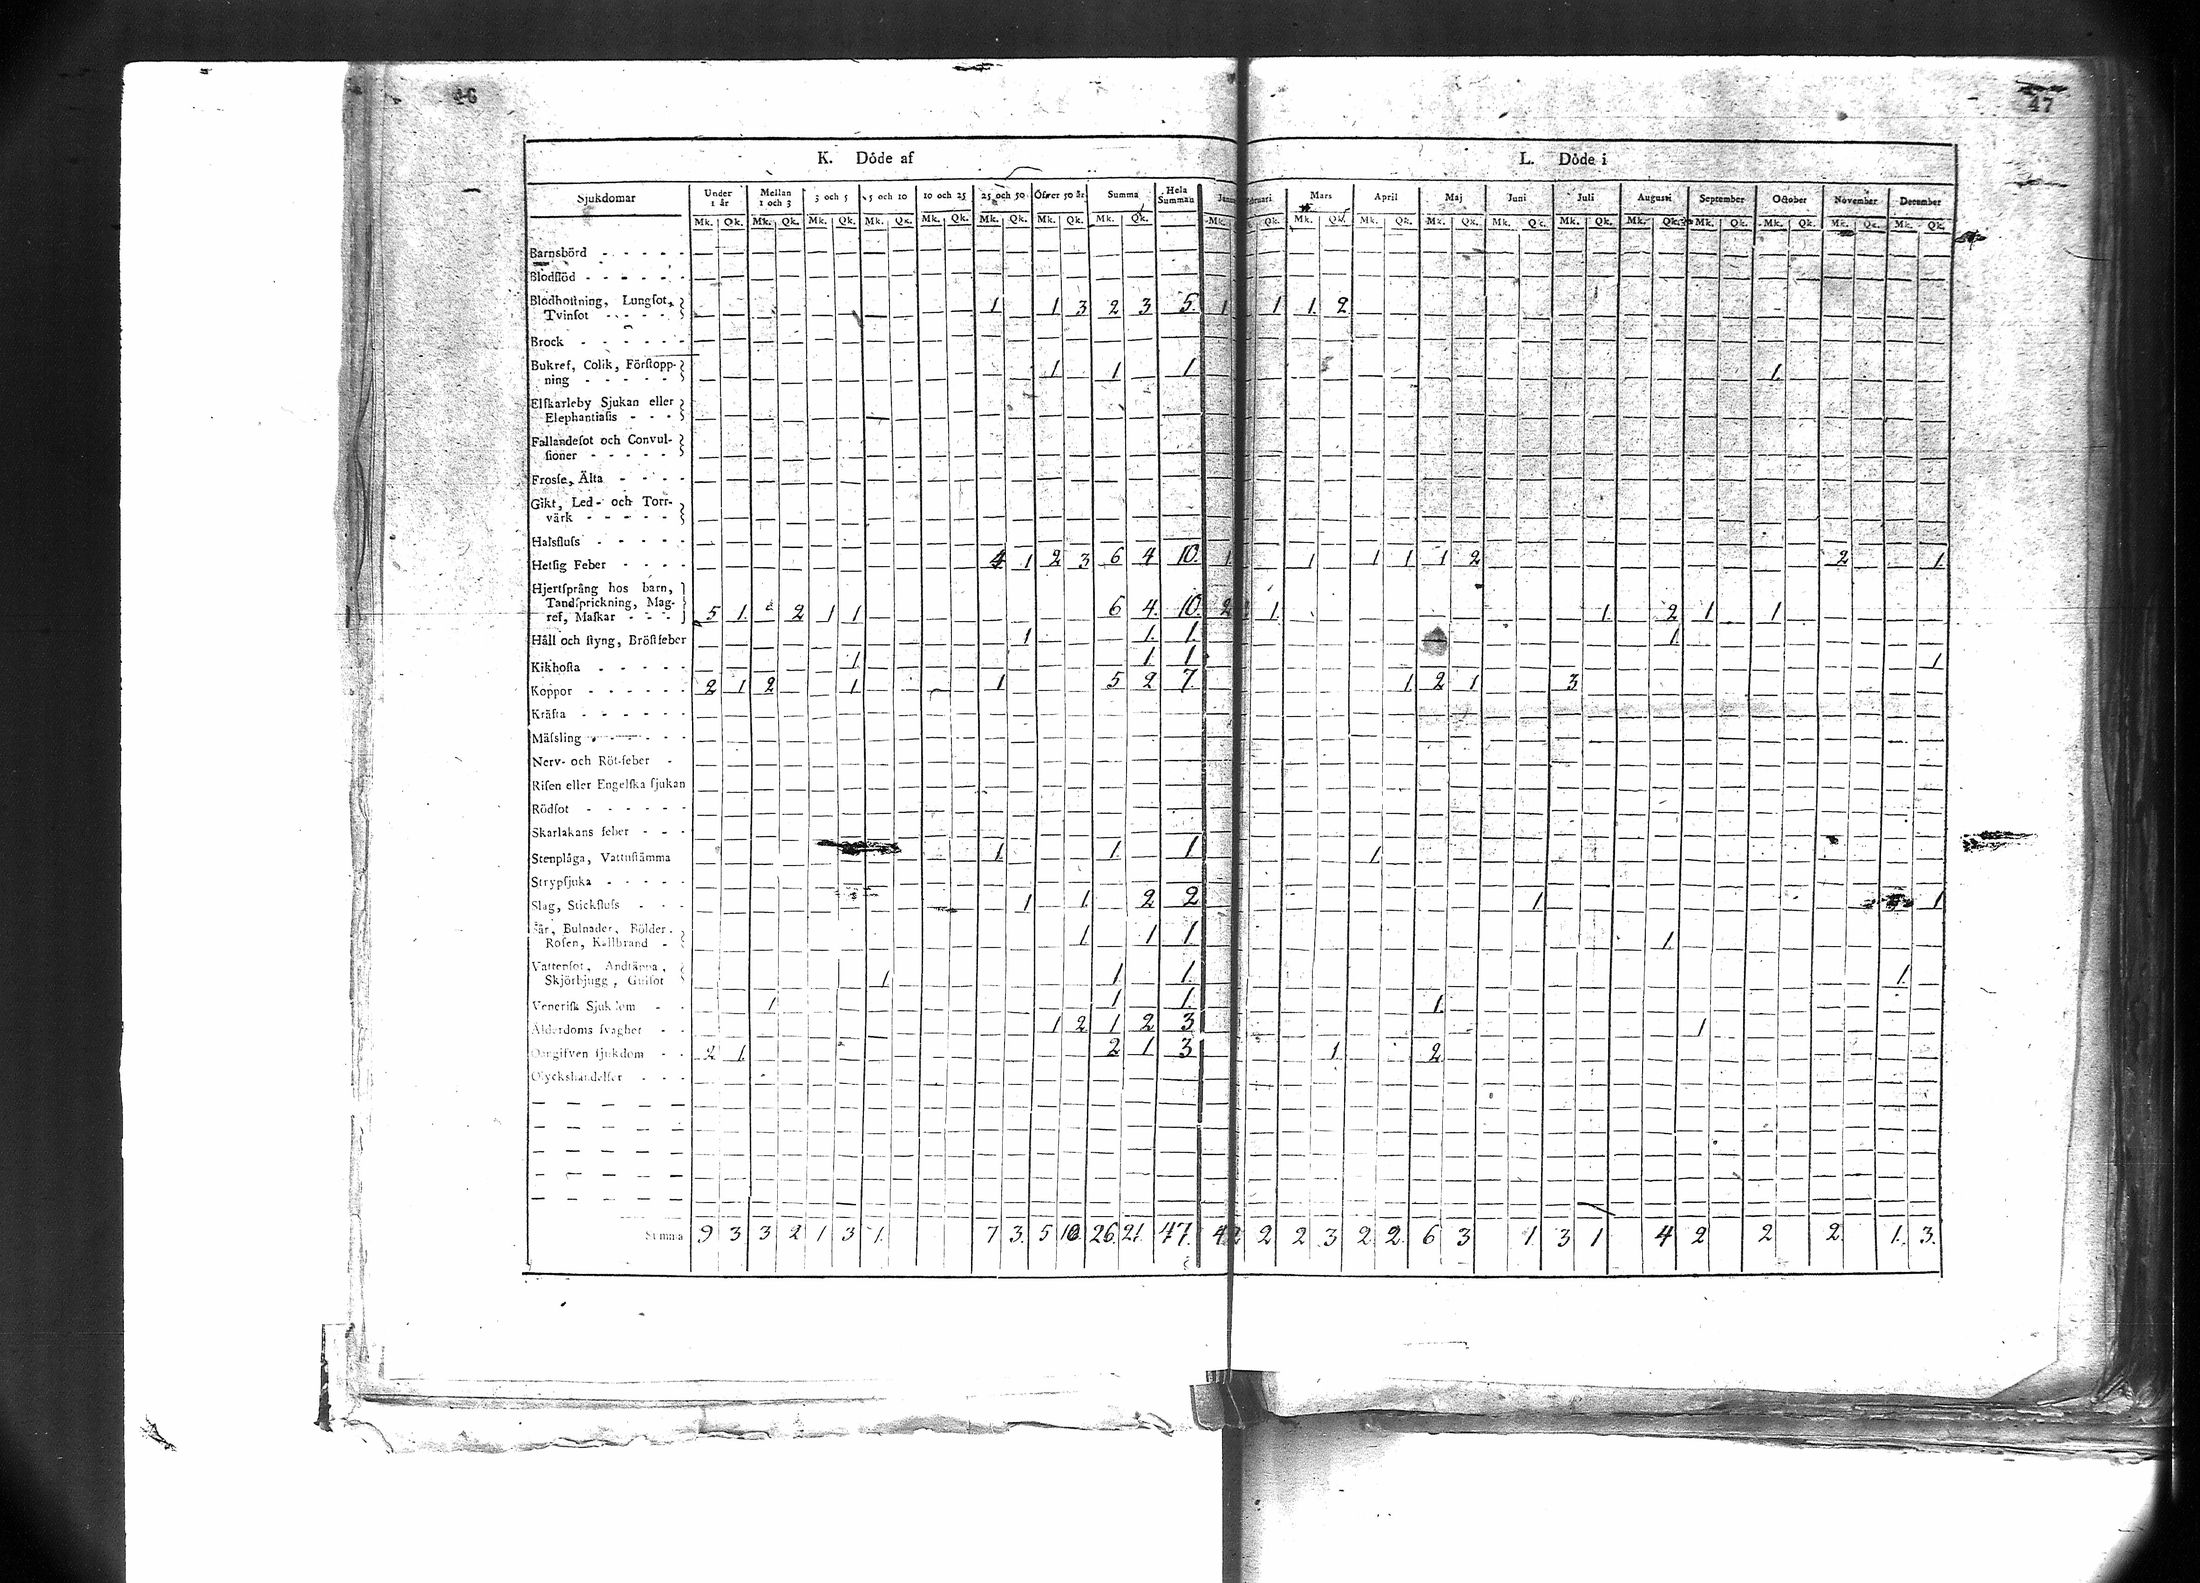 46
47
K. Döde af
L. Döde i
Sjukdomar Under 1 år Mellan 1 och 3 3 och 5 5 och 10 10 och 25 25 och 50 Öfver 50 år Summa Hela Summan
Mars April Maj Juni Juli Augusti September October November December
Mk. Qk. Mk. Qk. Mk. Qk. Mk. Qk. Mk. Qk. Mk. Qk. Mk. Qk. Mk. Qk. Mk. Qk. Mk. Qk. Mk. Qk. Mk. Qk. Mk. Qk. Mk. Qk. Mk. Qk. Mk. Qk. Mk. Qk. Mk. Qk. Mk. Qk.
Barnsbörd
Blodſlöd
Blodhoſtning, Lungſot,
Tvinſot 1 1 3 2 3 5. 1 1 1. 2
Brock
Bukref, Colik, Förſtopp-
ning 1 1 1 1.
Elfkarleby Sjukan eller
Elephantiaſis
Fallandeſot och Convul-
ſioner
Frosſe, Älta
Gikt, Led- och Torr-
värk
Halsfluſs
Hetſig Feber 4 1 2 3 6 4 10. 1 1 1 1 1 2 2 1
Hjertſprång hos barn,
Tandſprickning, Mag-
ref, Maſkar 5 1. 2 1 1 6 4. 10. 2 1. 1. 2 1 1
Håll och ſtyng, Bröſtfeber 1 1. 1. 1.
Kikhoſta 1. 1 1 1
Koppor 2 1 2 1 1 5 2 7. 1. 2 1 3
Kräfta
Mäſsling
Nerv- och Röt-feber
Riſen eller Engelſka ſjukan
Rödſot
Skarlakans feber
Stenplåga, Vattuſtämma 1. 1. 1 1.
Strypſjuka
Slag, Stickfluſs 1 1. 2 2 1 1
Sår, Bulnader, Bölder,
Roſen, Kallbrand 1. 1 1. 1.
Vattenſot, Andtäppa,
Skjörbjugg, Gulſot 1 1. 1. 1.
Veneriſk Sjukdom 1 1 1. 1.
Ålderdoms ſvaghet 1 2 1 2 3 1
Oangifven ſjukdom 2 1. 2 1 3 1. 2
Olyckshändelſer
Summa 9 3 3 2 1 3 1. 7 3. 5 10 26. 21. 47. 4 2 2 2 3 2 2. 6 3 1. 3 1 4 2 2 2. 1. 3.